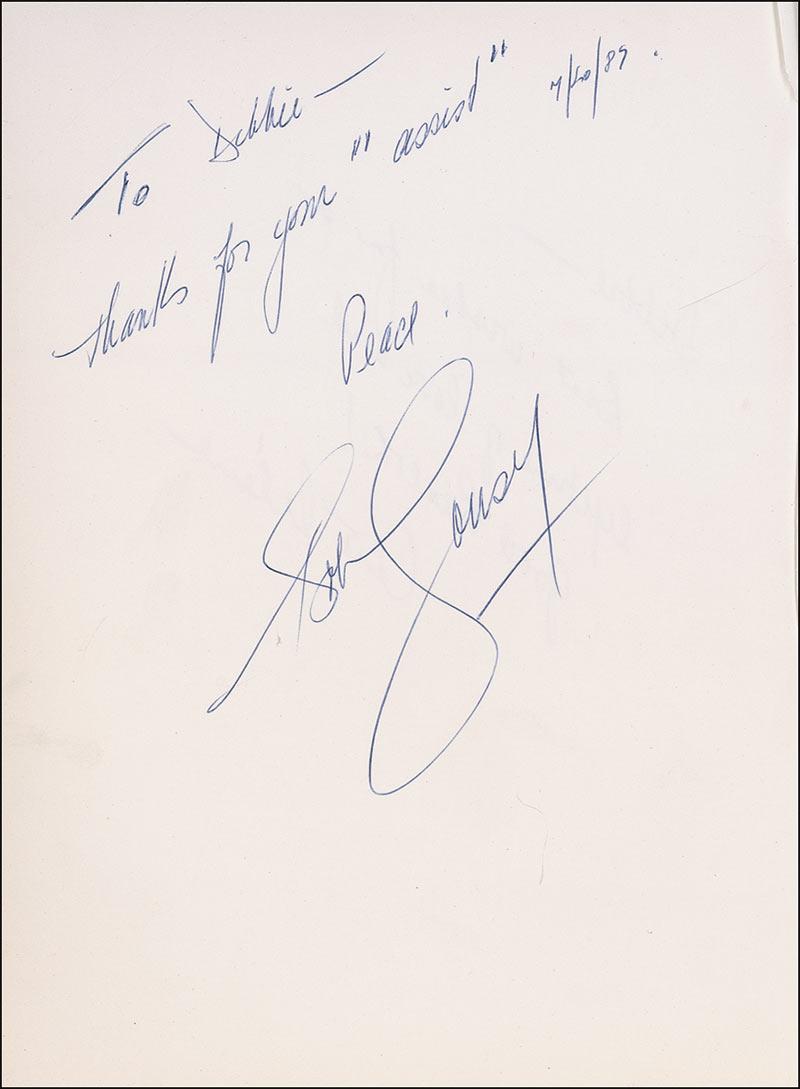 To Debbie —
thanks for your "assist" 7/20/89.
Peace.
Bob Cousy